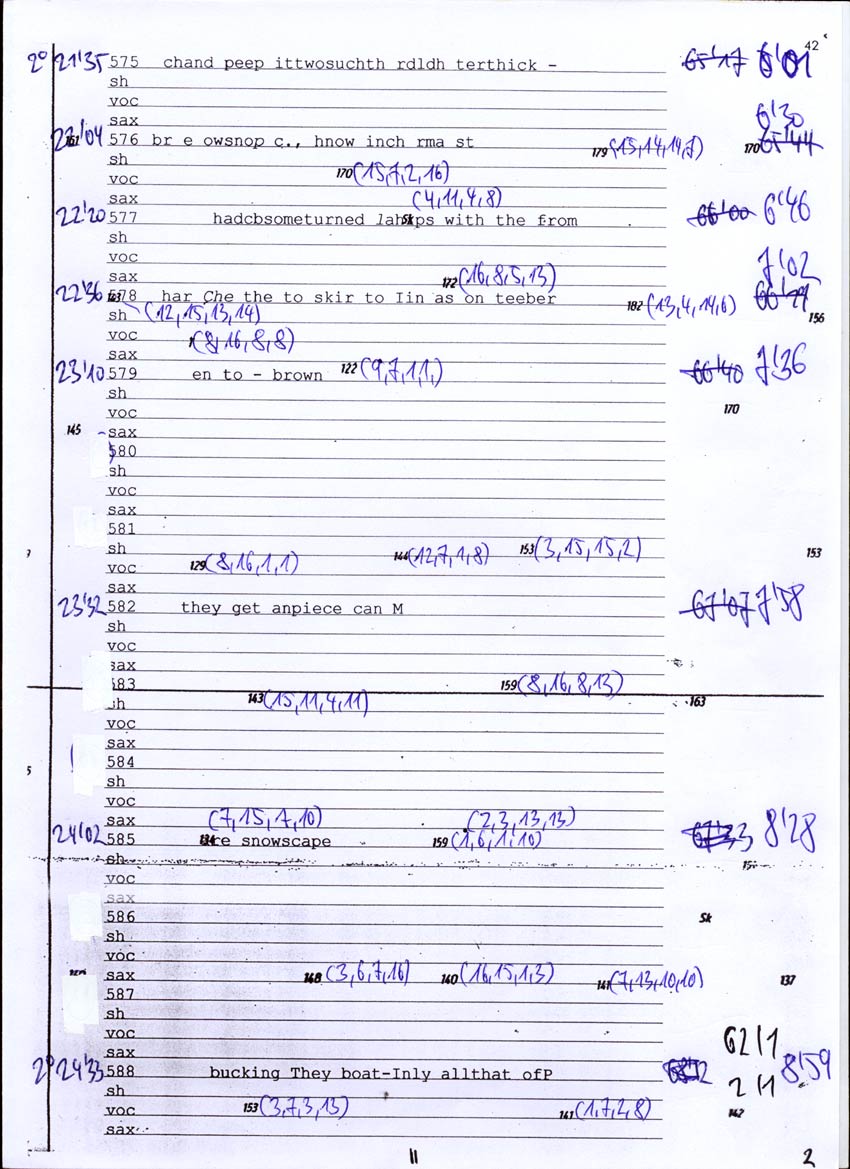 42
2° 21'35 575 chand peep ittwosuchth rdldh terthick - 65'17 6'01
sh
voc
sax 6'30
576 br e owsnop c., hnow inch rma st 179 (15,14,14,7) 170 65'44
sh
voc 170 (15,7,2,16)
sax (4,11,4,8)
22'20 577 hadcbsometurned with the from 66'00 6'46
sh
voc 7'02
sax 172 (16,8,5,13)
22'36 578 har Che the to skir to Iin as on teeber 182 (13,4,14,6)
sh (12,15,13,14) 156
voc (8,16,8,8)
sax
23'10 579 en to - brown 122 (9,7,1,1,) 66'40 7'36
sh
voc 170
145 sax
580
sh
voc
sax
581
sh 144 (12,7,1,8) 153 (3,15,15,2) 153
voc 129 (8,16,1,1)
sax
23'32 582 they get anpiece can M 67'07 7'58
sh
voc
sax
583 159 (8,16,8,13)
sh 143 (15,11,4,11) 163
voc
sax
584
sh
voc
sax (7,15,7,10) (2,3,13,13)
24'02 585 snowscape 159 (1,6,1,10) 8'28
sh
voc
sax
586 Sk
sh
voc
sax 148 (3,6,7,16) 140 (16,15,1,3) 141 (7,13,10,10) 137
587
sh
voc 62/1
sax
2° 24'33 588 bucking They boat-Inly allthat ofP 8'59
sh 2/1
voc 153 (3,7,3,13) 141 (1,7,2,8) 142
sax
11 2